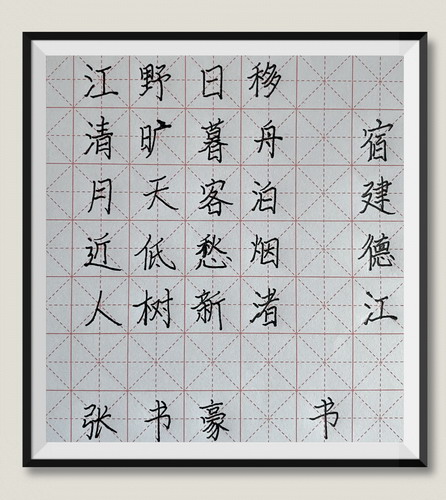 宿建德江
移舟泊烟渚
日暮客愁新
野旷天低树
江清月近人
张书豪 书